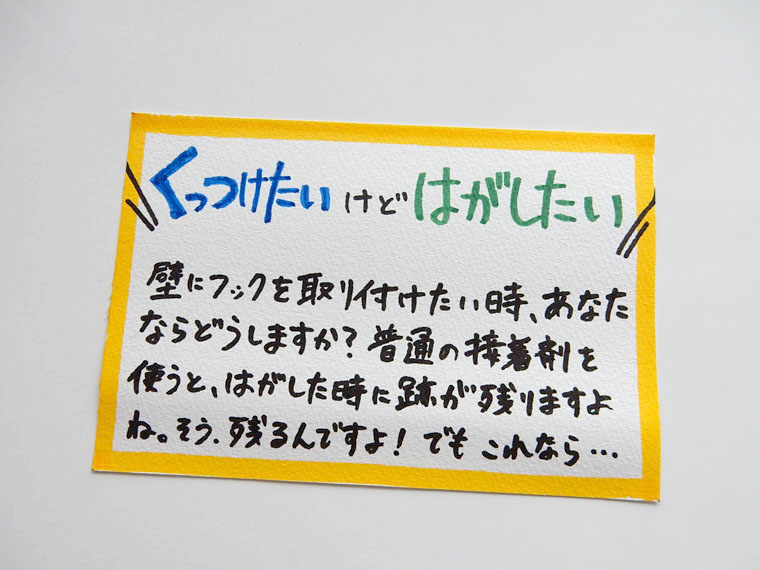 くっつけたいけどはがしたい
壁にフックを取り付けたい時、あなた
ならどうしますか？普通の接着剤を
使うと、はがした時に跡が残りますよ
ね。そう、残るんですよ！でもこれなら…